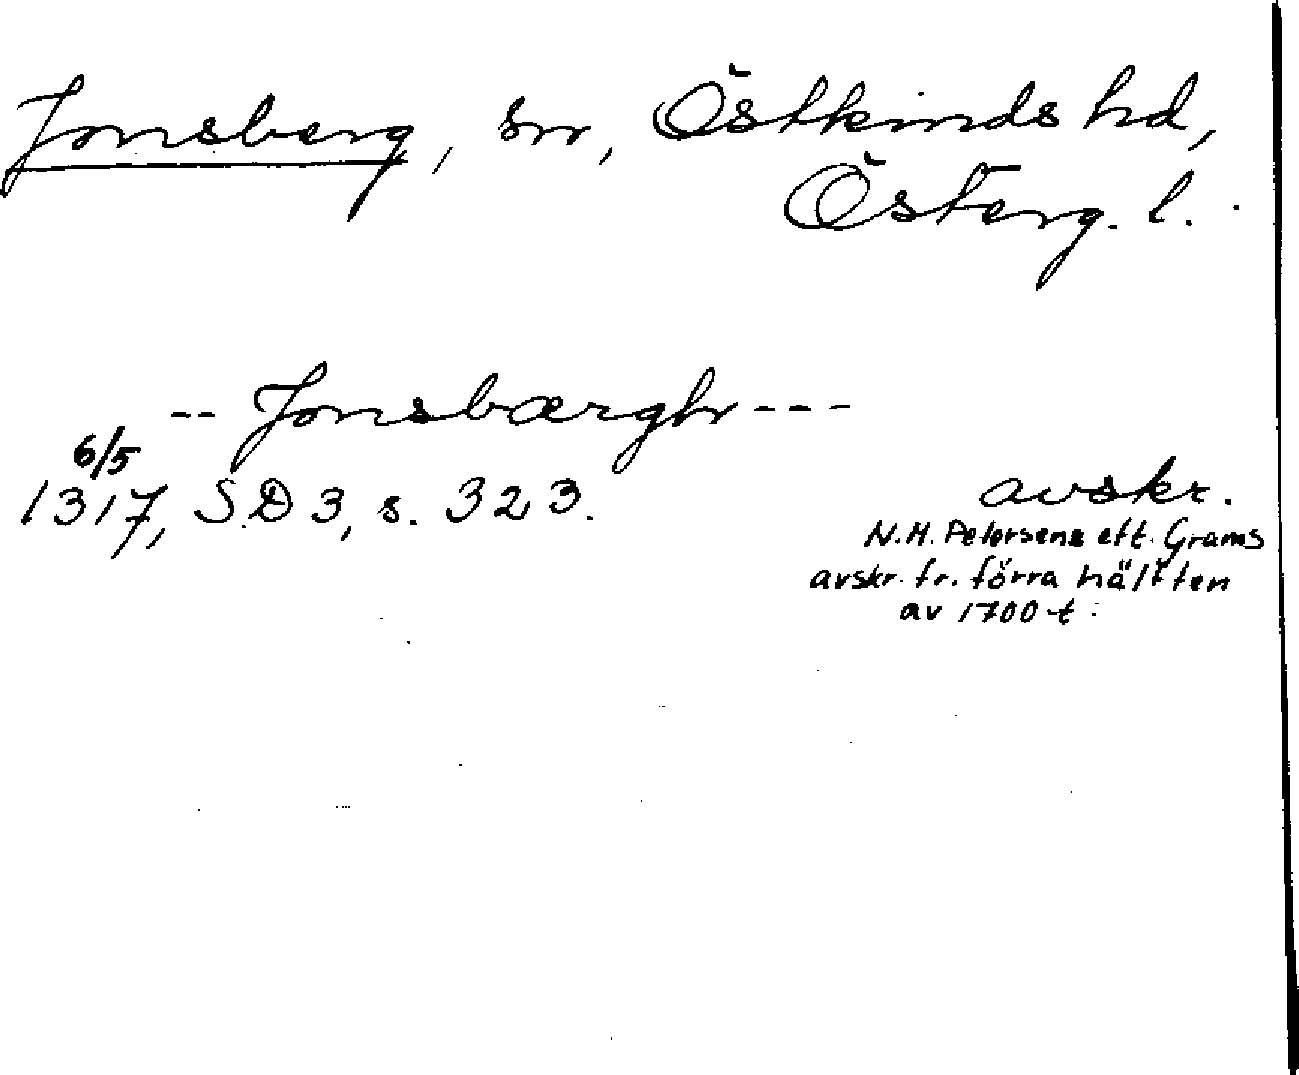 Jonsberg, sn, Östkinds hd,
Österg. l.
-- Jonsbærgh ---
6/5
1317, S.D 3, s. 323.
avskr.
N.M. Petersens eft. Grams
avskr. fr. förra hälften
av 1700-t.